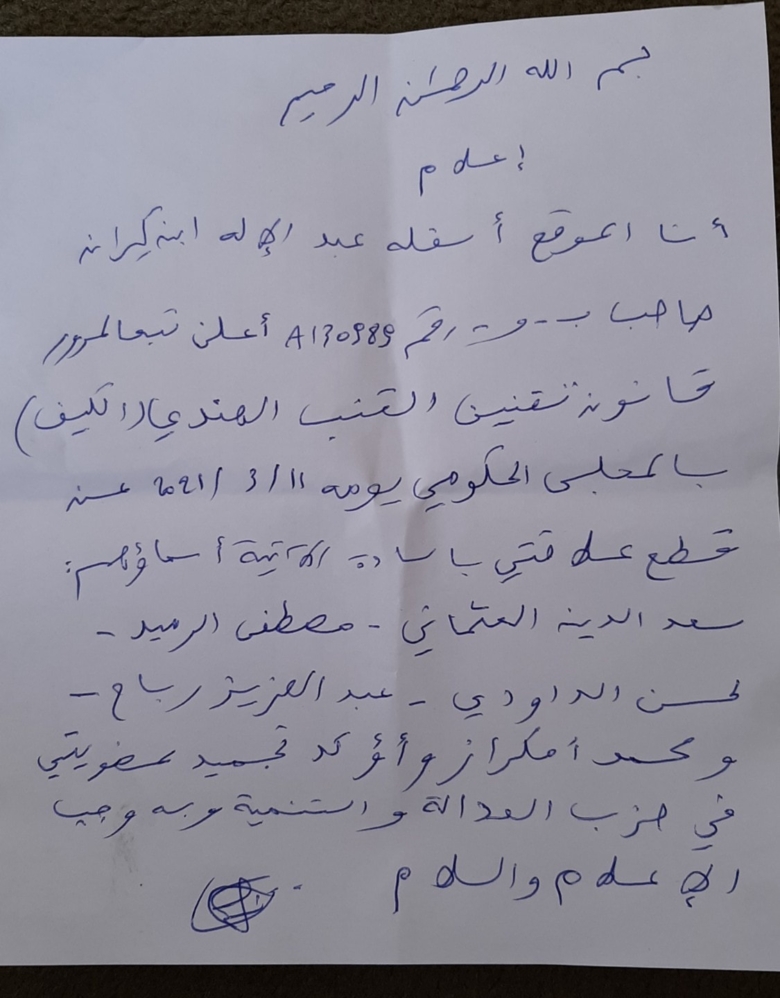 بسم الله الرحمن الرحيم
إعلام
أنا الموقع أسفله عبد الإله ابن كيران
صاحب ب-و- رقم A130989 أعلن تبعا لمرور
قانون تقنين القنب الهندي (الكيف)
بالمجلس الحكومي يومه 11/3/2021 عن
قطع علاقتي بالسادة الآتية أسماؤهم:
سعد الدين العثماني - مصطفى الرميد -
لحسن الداودي - عبد العزيز رباح -
و محمد أمكراز وأؤكد تجميد عضويتي
في حزب العدالة والتنمية وبه وجب
الإعلام والسلام